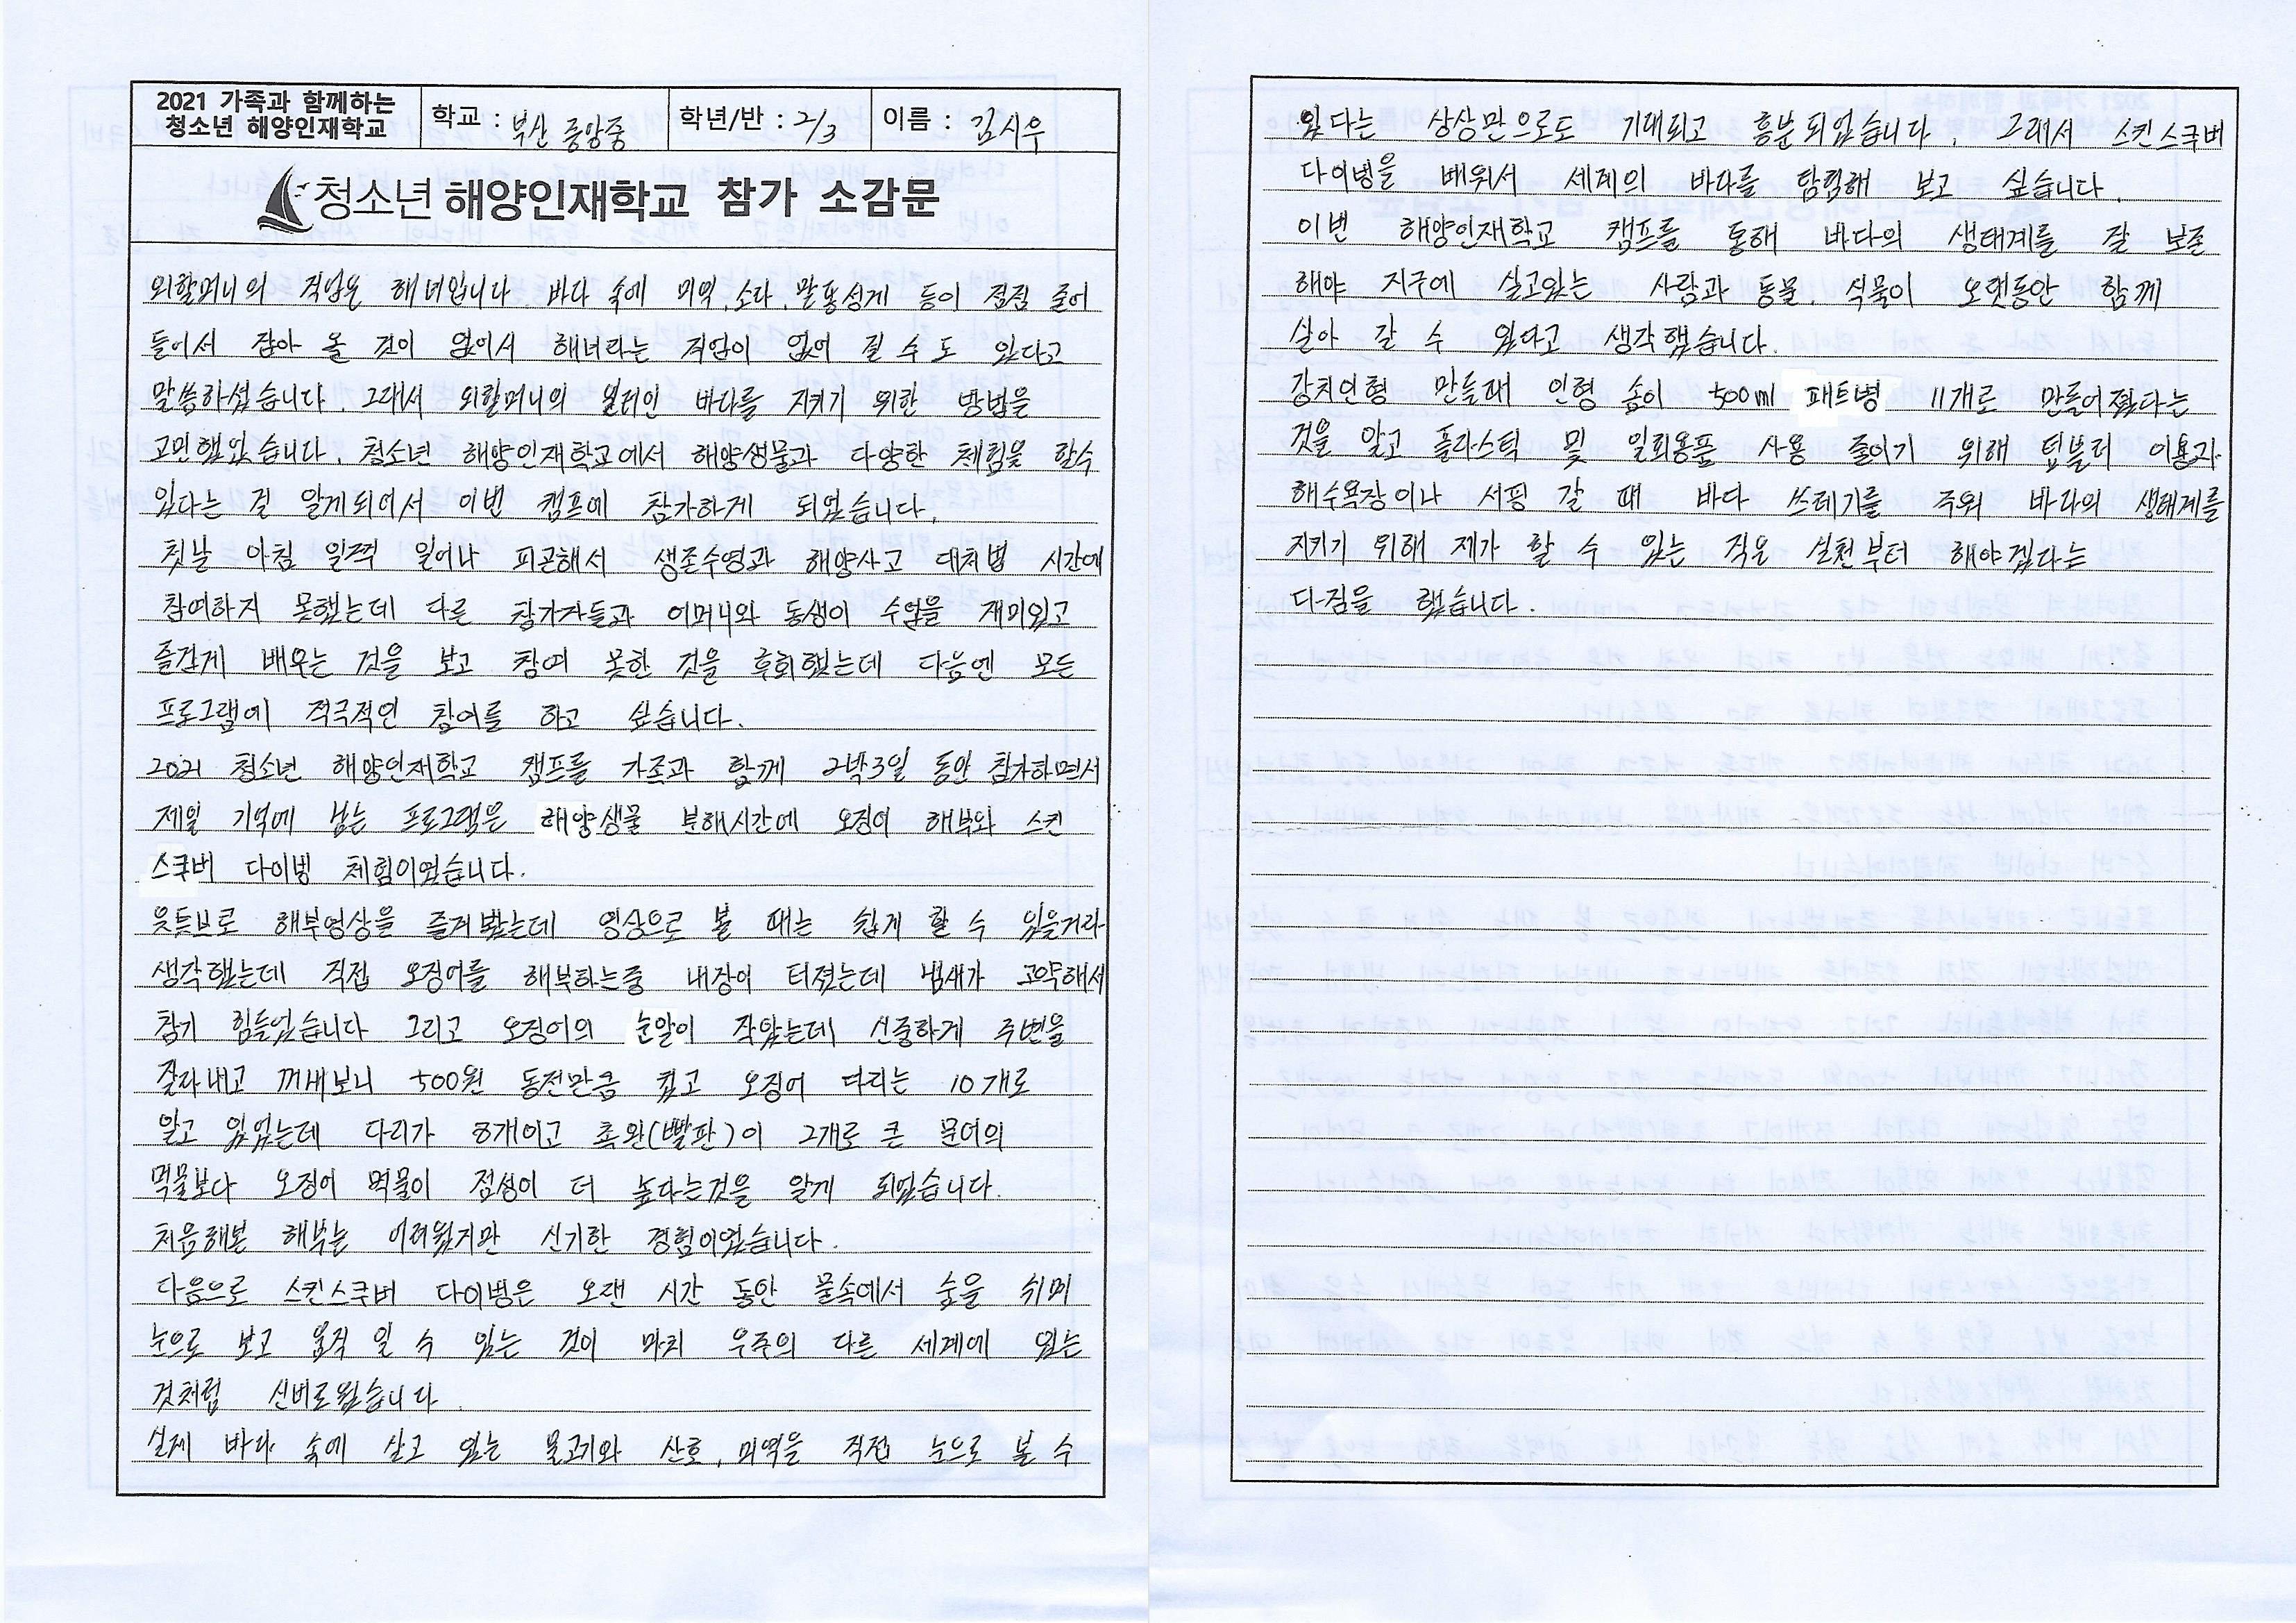 2021 가족과 함께하는
청소년 해양인재학교
학교 : 부산 중앙중
학년/반 : 2/3
이름 : 김시우
청소년 해양인재학교 참가 소감문
외할머니의 직업은 해녀입니다. 바다 속에 미역, 소라, 말똥성게 등이 점점 줄어
들어서 잡아 올 것이 없어서 해녀라는 직업이 없어 질 수도 있다고
말씀하셨습니다. 그래서 외할머니의 일터인 바다를 지키기 위한 방법을
고민했었습니다. 청소년 해양인재학교에서 해양생물과 다양한 체험을 할수
있다는 걸 알게되어서 이번 캠프에 참가하게 되었습니다.
첫날 아침 일찍 일어나 피곤해서 생존수영과 해양사고 대처법 시간에
참여하지 못했는데 다른 참가자들과 어머니와 동생이 수업을 재미있고
즐겁게 배우는 것을 보고 참여 못한 것을 후회했는데 다음엔 모든
프로그램에 적극적인 참여를 하고 싶습니다.
2021 청소년 해양인재학교 캠프를 가족과 함께 2박3일 동안 참가하면서
제일 기억에 남는 프로그램은 해양생물 분해시간에 오징어 해부와 스킨
스쿠버 다이빙 체험이었습니다.
유튜브로 해부영상을 즐겨봤는데 영상으로 볼 때는 쉽게 할 수 있을거라
생각했는데 직접 오징어를 해부하는중 내장이 터졌는데 냄새가 고약해서
참기 힘들었습니다 그리고 오징어의 눈알이 작았는데 신중하게 주변을
잘라내고 꺼내보니 500원 동전만큼 컸고 오징어 다리는 10개로
알고 있었는데 다리가 8개이고 촉완(빨판)이 2개로 큰 문어의
먹물보다 오징어 먹물이 점성이 더 높다는것을 알게 되었습니다.
처음해본 해부는 어려웠지만 신기한 경험이었습니다.
다음으로 스킨스쿠버 다이빙은 오랜 시간 동안 물속에서 숨을 쉬며
눈으로 보고 움직 일 수 있는 것이 마치 우주의 다른 세계에 있는
것처럼 신비로웠습니다.
실제 바다 속에 살고 있는 물고기와 산호, 미역을 직접 눈으로 볼 수
있다는 상상만으로도 기대되고 흥분되었습니다. 그래서 스킨스쿠버
다이빙을 배워서 세계의 바다를 탐험해 보고 싶습니다.
이번 해양인재학교 캠프를 통해 바다의 생태계를 잘 보존
해야 지구에 살고있는 사람과 동물, 식물이 오랫동안 함께
살아 갈 수 있다고 생각했습니다.
강치인형 만들때 인형 솜이 500ml 패트병 11개로 만들어졌다는
것을 알고 플라스틱 및 일회용품 사용 줄이기 위해 텀블러 이용과
해수욕장이나 서핑 갈 때 바다 쓰레기를 주워 바다의 생태계를
지키기 위해 제가 할 수 있는 작은 실천부터 해야겠다는
다짐을 했습니다.